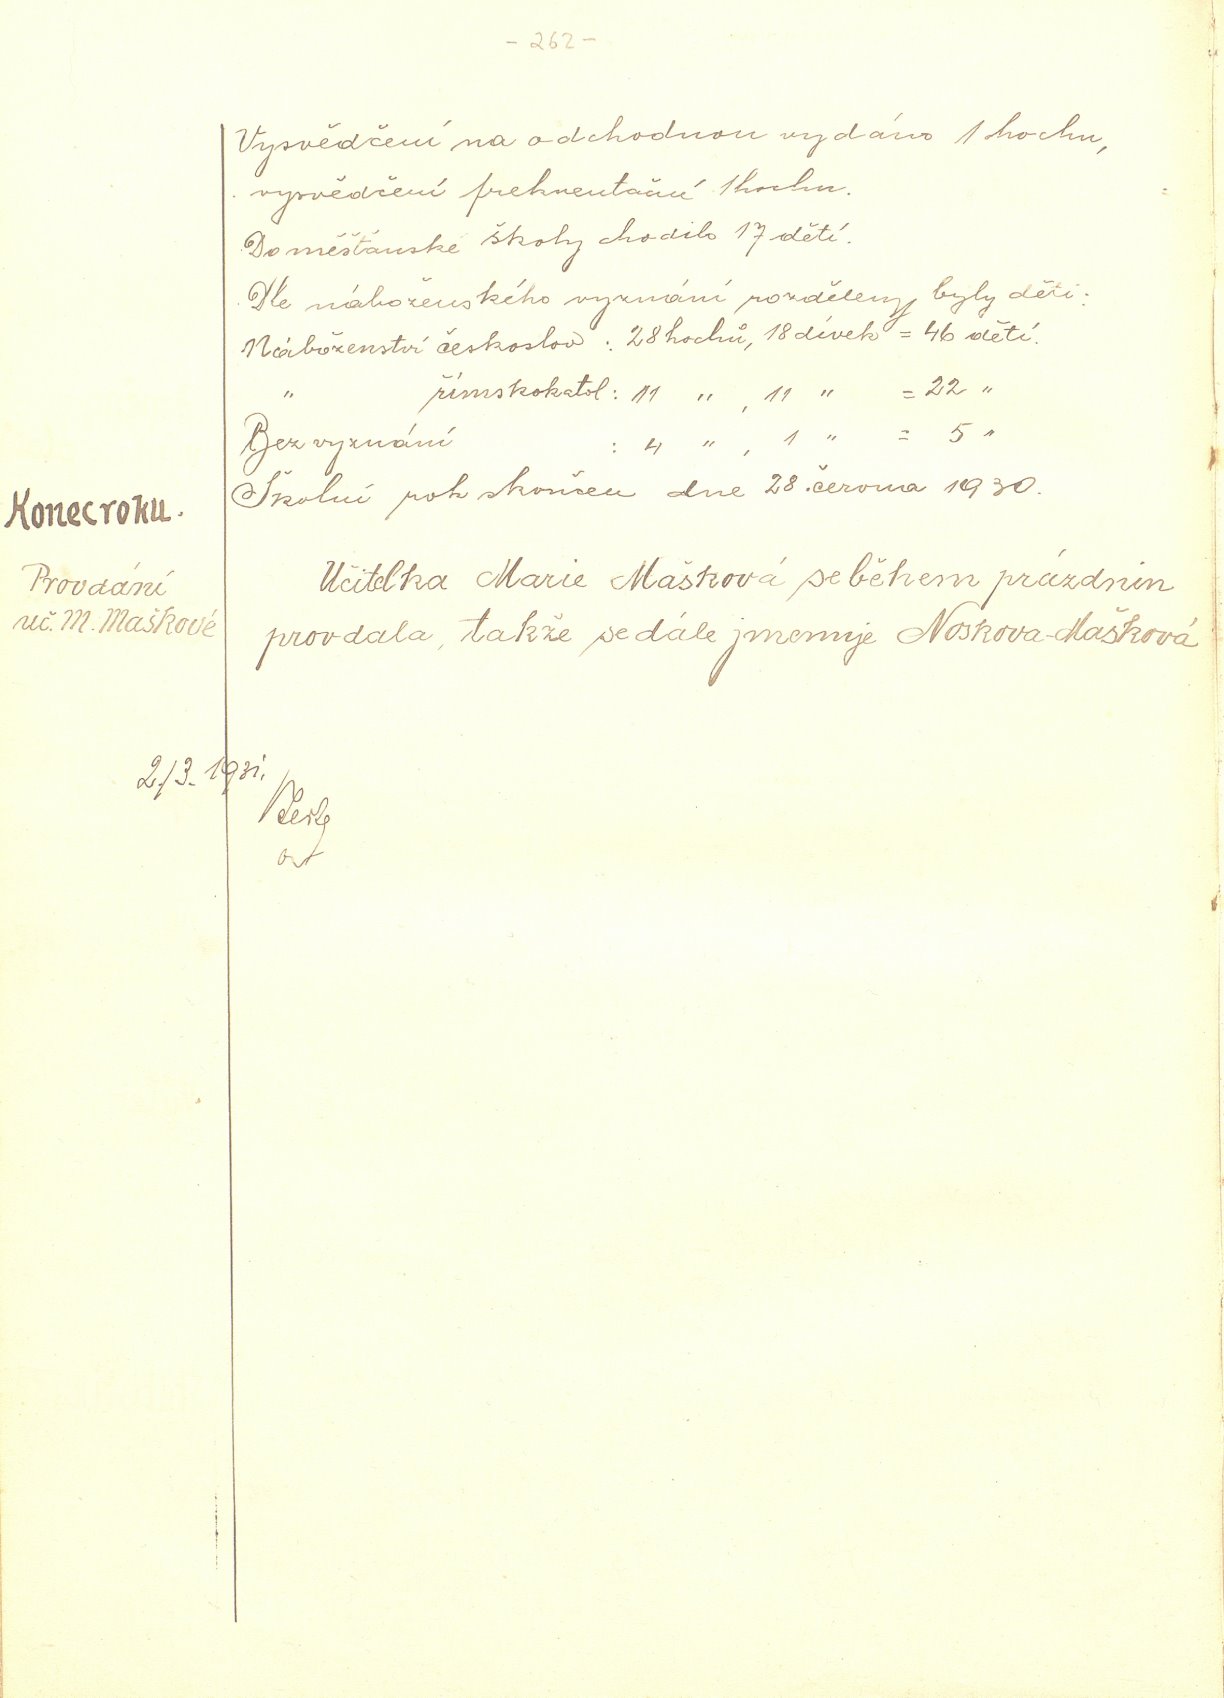 - 262 -
Vysvědčení na odchodnou vydáno 1 hochu,
vysvědčení frekventační 1 hochu.
Do měšťanské školy chodilo 17 dětí.
Dle náboženského vyznání rozděleny byly děti:
Náboženství českoslov : 28 hochů, 18 dívek = 46 dětí.
" římskokatol : 11 " , 11 " = 22 "
Bez vyznání : 4 " , 1 " = 5 "
Konec roku.
Školní rok skončen dne 28. června 1930.
Provdání
uč. M. Maškové
Učitelka Marie Mašková se během prázdnin
provdala, takže se dále jmenuje Noskova-Mašková
2/3. 1931.